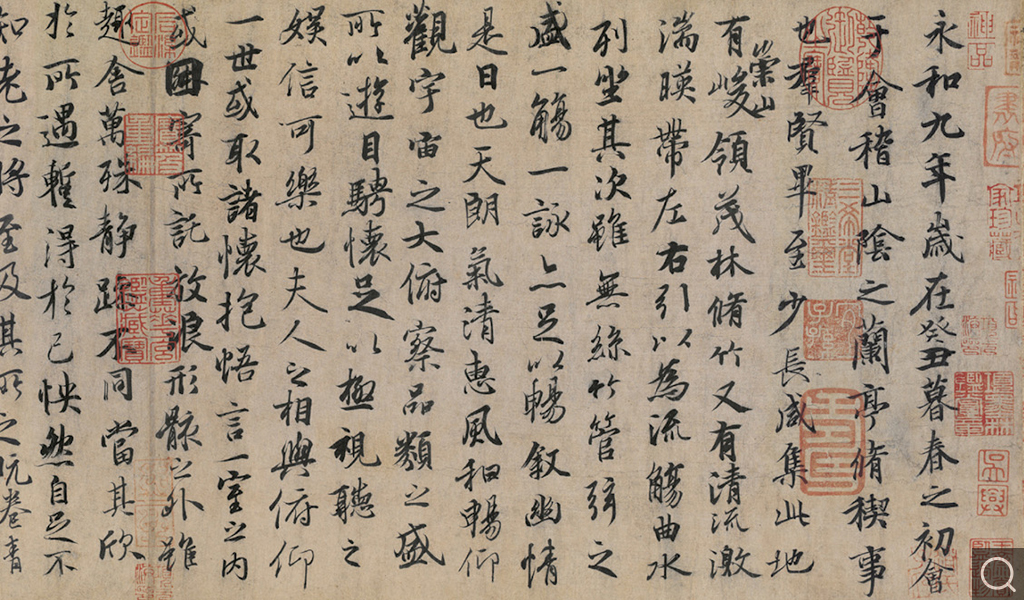 神品
永和九年歲在癸丑暮春之初會
于會稽山陰之蘭亭脩稧事
也羣賢畢至少長咸集此地
有崇山峻領茂林脩竹又有清流激
湍暎帶左右引以為流觴曲水
列坐其次雖無絲竹管弦之
盛一觴一詠亦足以暢叙幽情
是日也天朗氣清惠風和暢仰
觀宇宙之大俯察品類之盛
所以遊目騁懷足以極視聽之
娛信可樂也夫人之相與俯仰
一世或取諸懷抱悟言一室之內
或因寄所託放浪形骸之外雖
趣舍萬殊静躁不同當其欣
於所遇蹔得於己怏然自足不
知老之將至及其所之既惓情